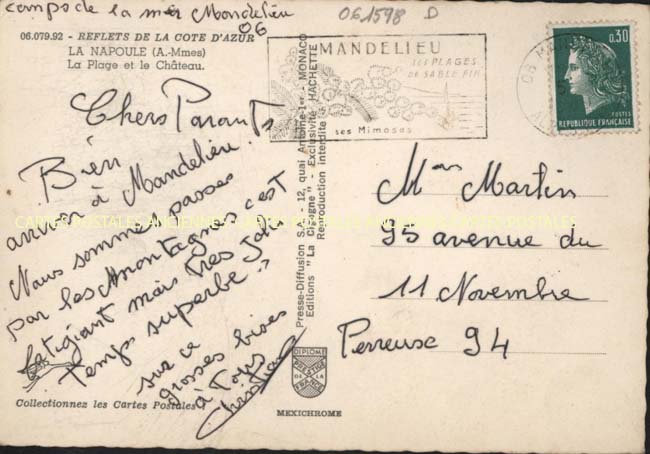 camps de la mer Mandelieu
06
061598 D
06.079.92 - REFLETS DE LA COTE D'AZUR
LA NAPOULE (A.-Mmes)
La Plage et le Château.
Chers Parants
Bien
arrivé à Mandelieu.
Nous sommes passes
par les Montagnes c'est
fatigiant mais très joli
Temps superbe
sur ce
grosses bises
à Tous
Christian
Collectionnez les Cartes Postales !
Presse-Diffusion S.A. - 12, quai Antoine-1er - MONACO
Editions "La Cigogne" - Exclusivité HACHETTE
Reproduction interdite
DIPLOME
PRESTIGE
DE LA
FRANCE
MEXICHROME
MANDELIEU
SES PLAGES
DE SABLE FIN
ses Mimosas
06 MA
0,30
POSTES
REPUBLIQUE FRANÇAISE
Martin
95 avenue du
11 Novembre
Perreuse 94
CARTES POSTALES ANCIENNES